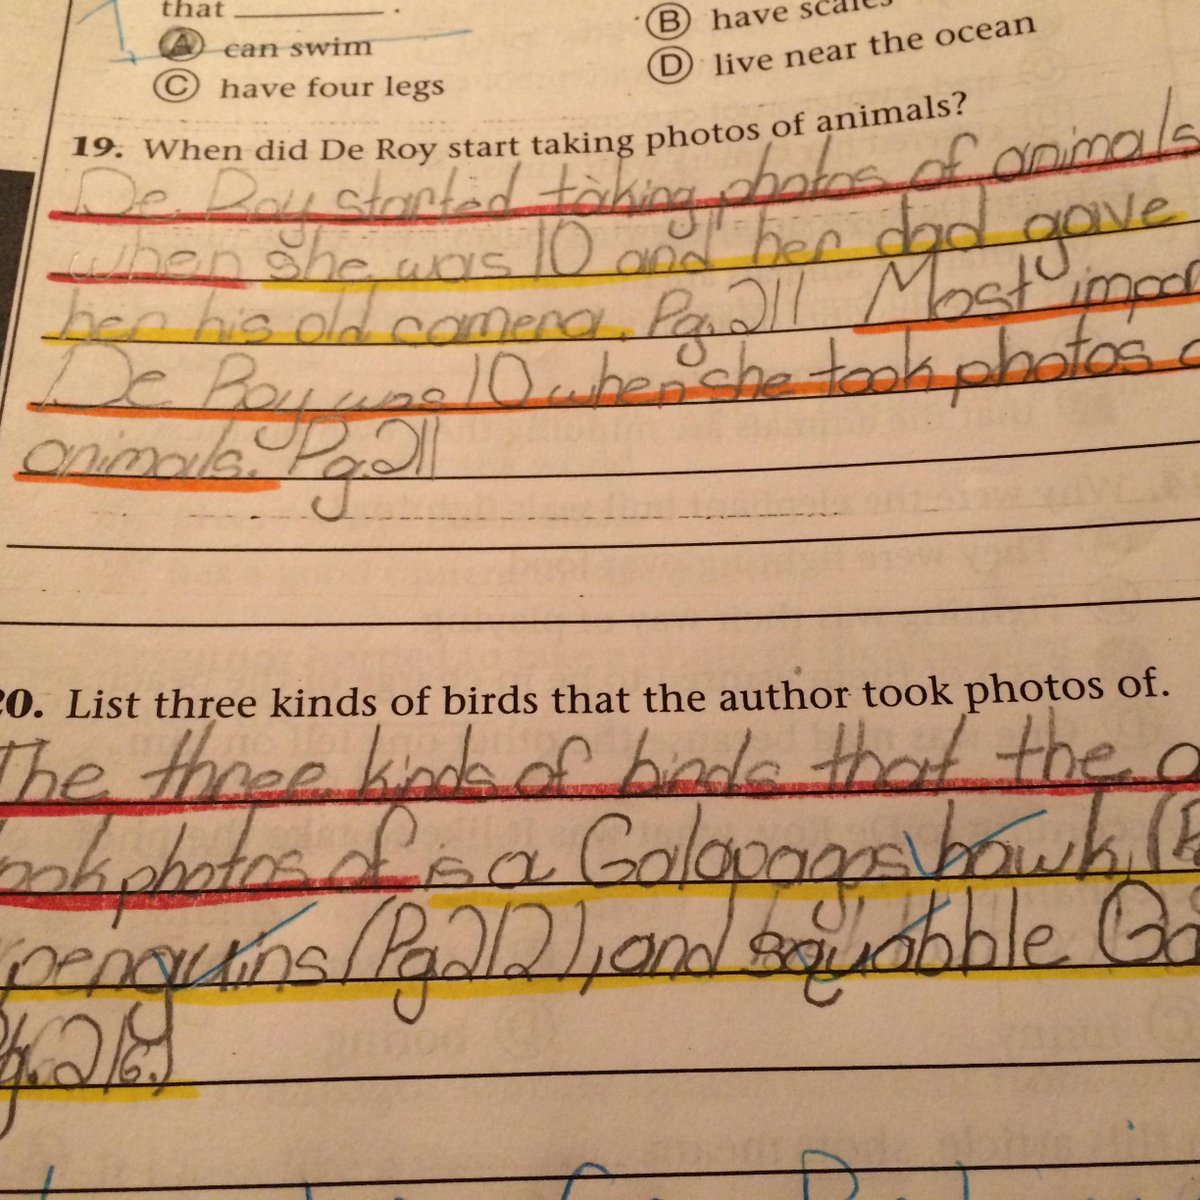 that ________ .
(B) have scales
(A) can swim
(D) live near the ocean
(C) have four legs
19. When did De Roy start taking photos of animals?
De Roy started taking photos of animals
when she was 10 and her dad gave
her his old camera. Pg. 211 Most impor
De Roy was 10 when she took photos o
animals. Pg. 211
20. List three kinds of birds that the author took photos of.
The three kinds of birds that the a
ook photos of is a Galapagos hawk, (
penguins (Pg 212), and squabble Ga
Pg. 216.)